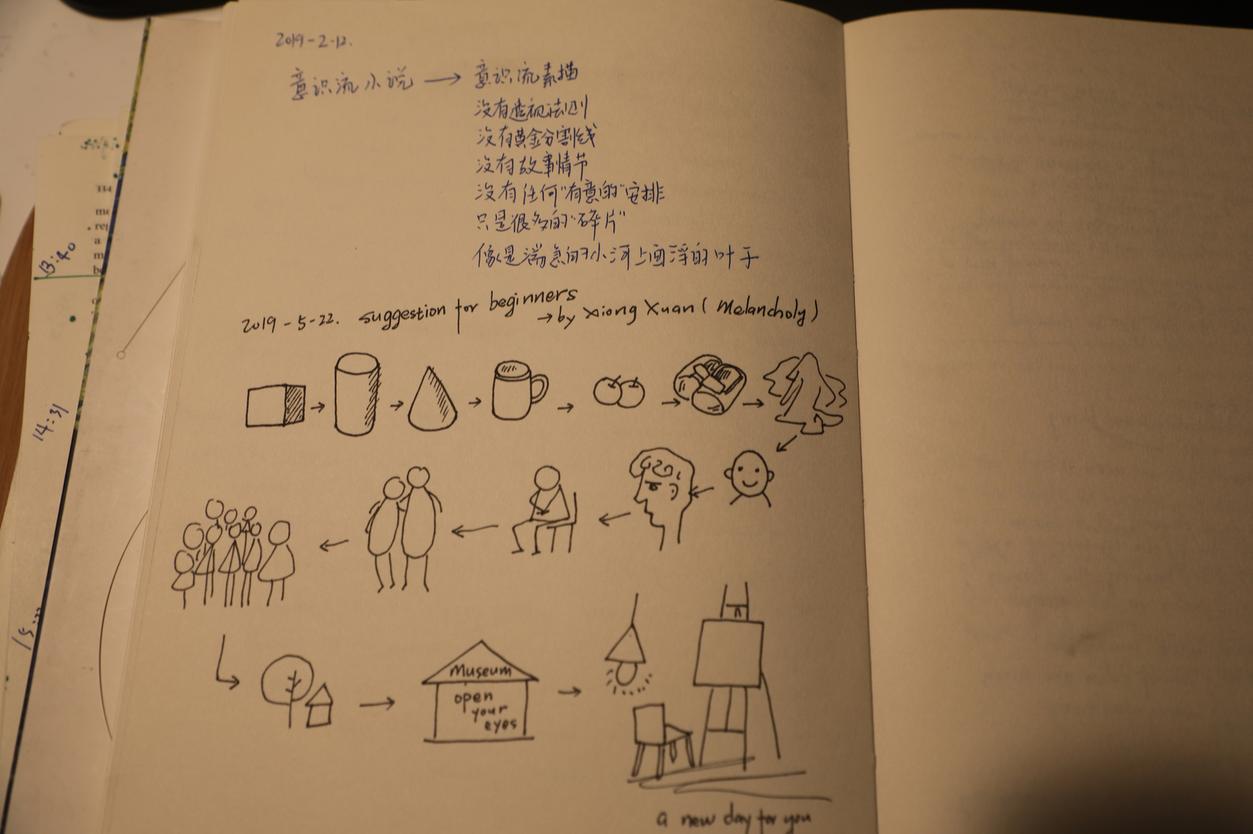 2019-2-12.
意识流小说 → 意识流素描
没有透视法则
没有黄金分割线
没有故事情节
没有任何"有意的"安排
只是很多的"碎片"
像是湍急的小河上面浮的叶子
2019-5-22. suggestion for beginners
→ by Xiong Xuan (Melancholy)
Museum
open
your
eyes
a new day for you
13:40
14:31